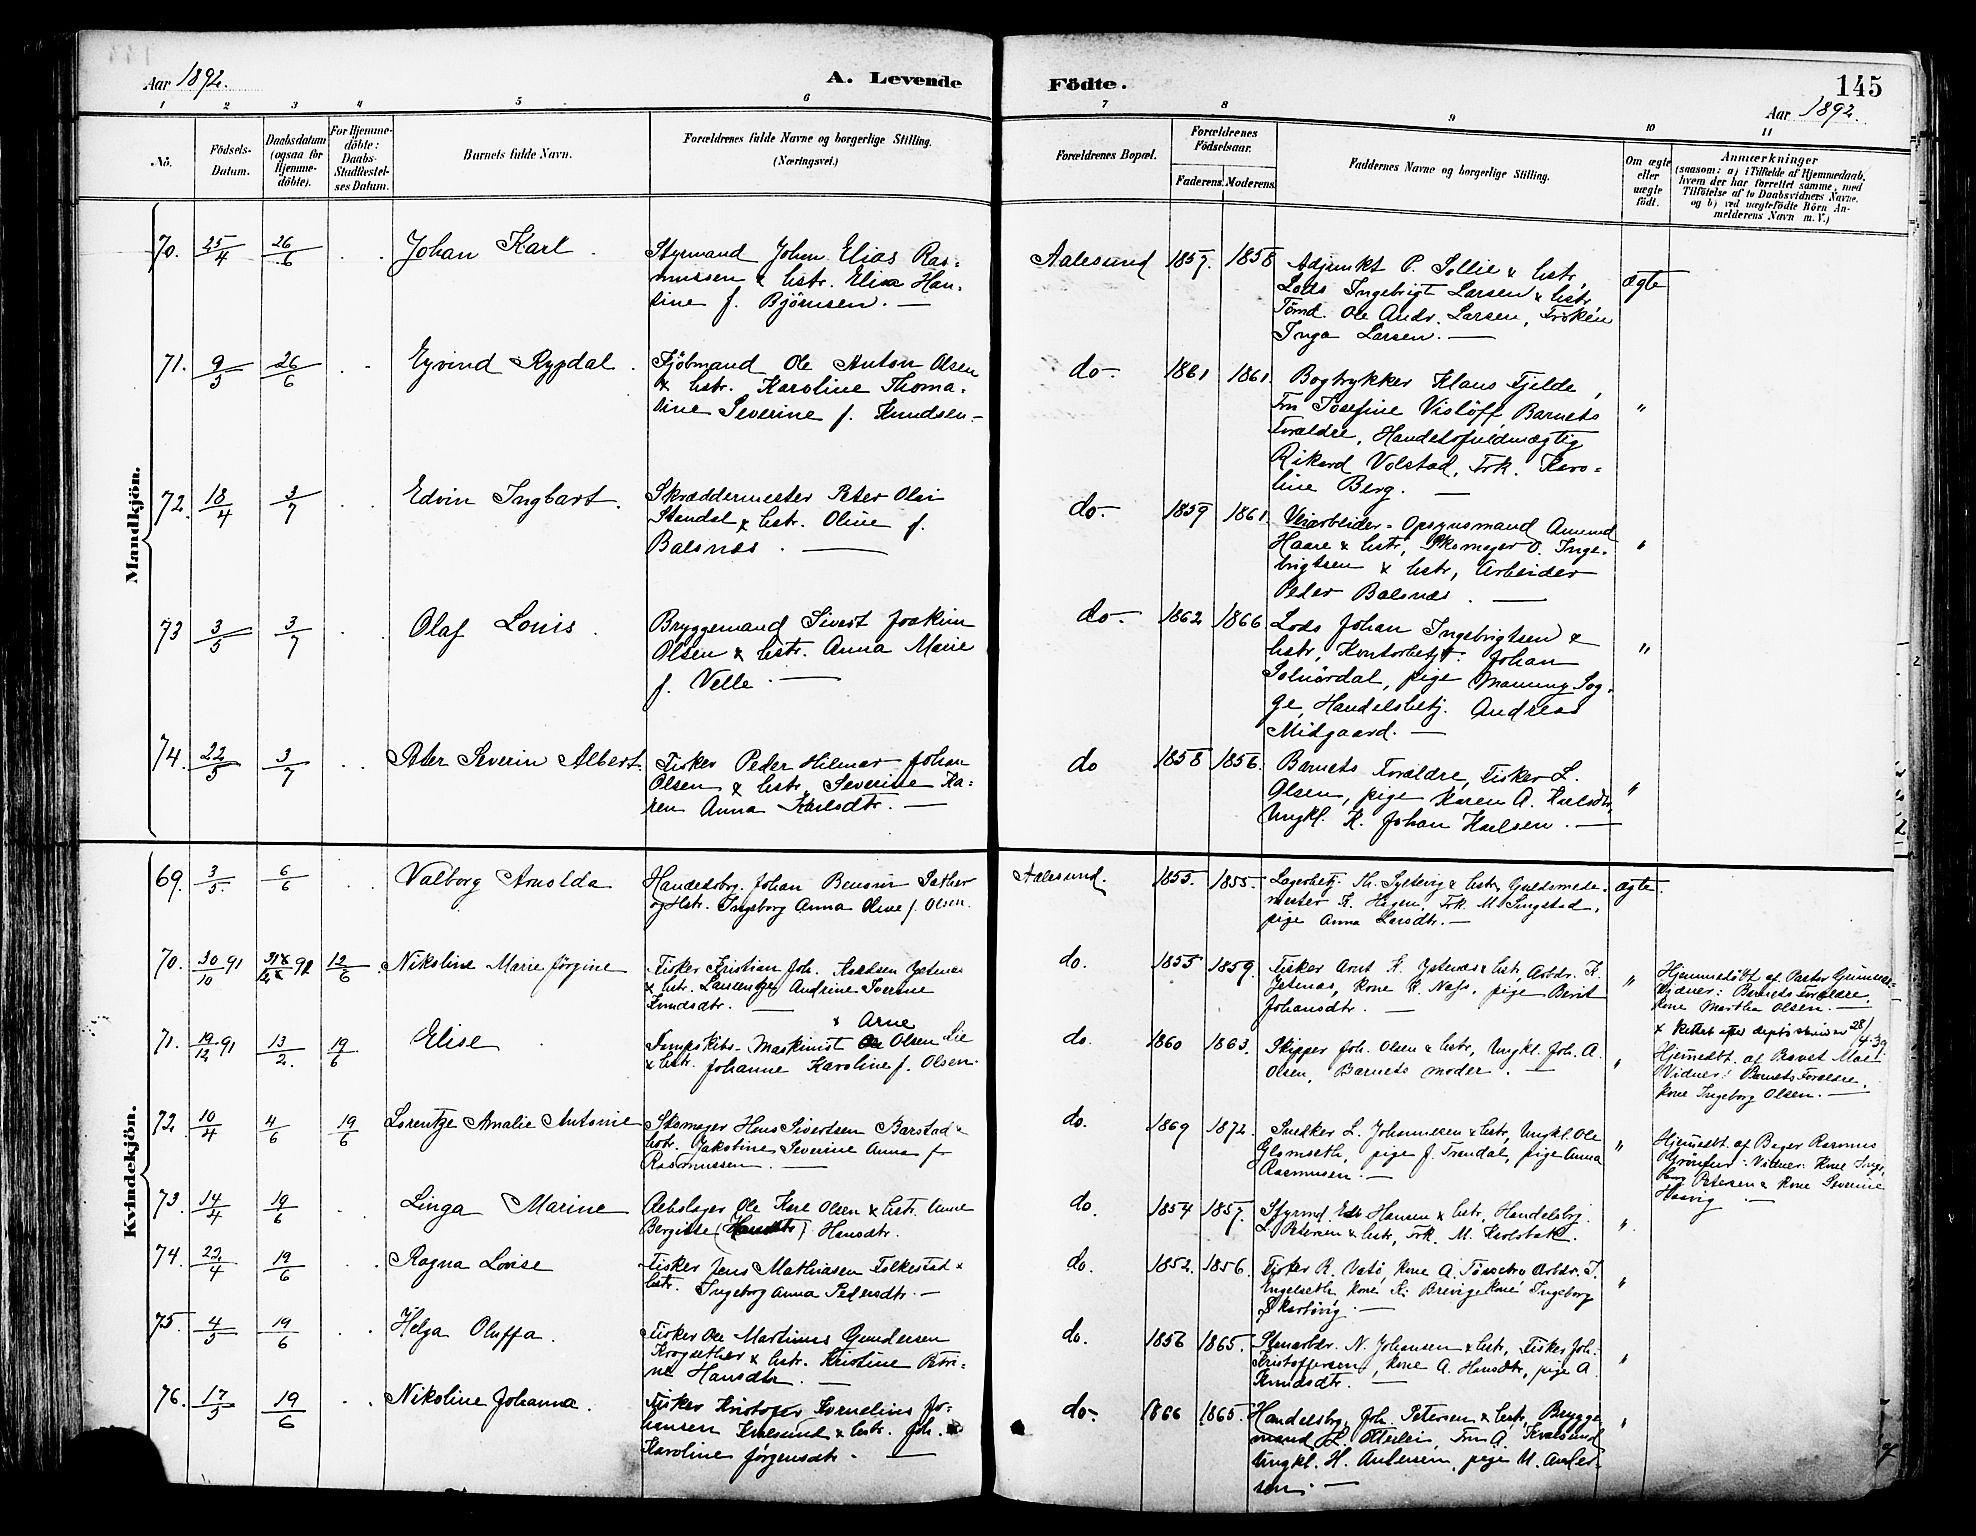 145
Aar 1892.
A. Levende
Födte.
Aar 1892.
1 2 3 4 5 6 7 8 9 10 11
No.
Födsels-Datum.
Daabsdatum (ogsaa for Hjemme-döbte).
For Hjemme-döbte: Daabs-Stadfæstel-ses Datum.
Barnets fulde Navn.
Forældrenes fulde Navne og borgerlige Stilling. (Næringsvei.)
Forældrenes Bopæl.
Forældrenes Födselsaar.
Faderens. Moderens.
Faddernes Navne og borgerlige Stilling.
Om ægte eller uægte födt.
Anmærkninger
(saasom: a) i Tilfælde af Hjemmedaab,
hvem der har forrettet samme, med
Tilföielse af to Daabsvidners Navne,
og b) ved uægtefödte Börn An-
melderens Navn m. V.)
Mandkjön.
70. 25/4 26/6 Johan Karl
Styrmand Johan Elias Ras-
mussen & hstr. Elisa Han-
sine f. Bjørnsen.
Aalesund 1857. 1858
Adjunkt P. Sollie & hstr,
Lods Ingebrigt Larsen & hstr,
Tømd. Ole Andr. Larsen, Frøken
Inga Larsen.
ægte
71. 9/5 26/6 Eyvind Rypdal.
Sjömand Ole Anton Olsen
& hstr. Karoline Thoma-
sine Severine f. Knudsen
do 1861 1861.
Bogtrykker Klaus Fjelde,
Fru Josefine Vislöff, Barnets
Forældre, Handelsfuldmægtig
Rikard Volstad, Frk. Karo-
line Berg.
"
72. 18/4 3/7 Edvin Ingbart.
Skræddermester Peter Olai
Standal & hstr. Oline f.
Balsnæs.
do 1859 1861.
Veiarbeider-Opsynsmand Amund
Haare & hstr, Skomager O. Inge-
brigtsen & hstr, Arbeider
Peder Balsnæs.
"
73 3/5 3/7 Olaf Louis.
Bryggemand Sivert Joakim
Olsen & hstr. Anna Marie
f. Velle.
do 1862 1866
Lods Johan Ingebrigtsen &
hstr, Kontorbetj. Johan
Solnørdal, pige Mammy Sog-
ge, Handelsbetj. Andreas
Midgaard.
"
74. 22/5 3/7 Peter Severin Albert.
Fisker Peder Hilmar Johan
Olsen & hstr. Severine Ka-
ren Anna Karlsdtr.
do 1858 1856.
Barnets Forældre, Fisker L.
Olsen, pige Karen A. Karlsdtr,
Ungkl. K. Johan Karlsen.
"
Kvindekjön.
69. 3/5 6/6 Valborg Arnolda
Handelsbrg. Johan Bensin Sather
og Hstr. Ingeborg Anna Oline f. Olsen.
Aalesund. 1855. 1855.
Lagerbetj. Th. Syltevig & hstr, Guldsmede-
mester K. Hagen, Frk. M. Singstad,
pige Anna Larsdtr.
ægte.
70. 30/10 91 12/6 Nikoline Marie Jørgine
Fisker Kristian Joh. Knudsen Ystenæs
& hstr. Laurentze Andrine Iverine
Knudsdtr.
do. 1855 1859.
Fisker Arnt K. Ystenæs & hstr, Arbdr. K.
Ystenæs, Kone K. Næss, pige Berit
Johansdtr.
"
Hjemmedöbt af Pastor
Vidner: Barnets Forældre,
Kone Martha Olsen.
71. 19/12 91 13/2. 19/6 Elise
& Arne
Dampskibs-Maskinist Olsen Lie
& hstr. Johanne Karoline f. Olsen.
do. 1860 1863.
Skipper Joh. Olsen & hstr, Ungkl. Joh. A.
Olsen, Barnets moder.
"
x Rettet efter 28/4-39
Hjemdbt. af
Vidner: Barnets Forældre,
Kone Ingeborg Olsen.
72. 10/4 4/6 19/6 Lorentze Amalie Antonie
Skomager Hans Sivertsen Barstad &
hstr. Jakobine Severine Anna f.
Rasmussen.
do. 1869 1872.
Snedker L. Johannesen & hstr, Ungkl. Ole
Glomseth, pige J. Trandal, pige Anna
Rasmusen.
"
Hjemdbt. af Bager Rasmus
Vidner: Kone Inge-
borg Petersen & Kone Severine
Haavig
73. 14/4 19/6 Linga Marine
Rebslager Ole Karl Olsen & hstr. Anne
Bergitte (Hansdtr) Hansdtr.
do. 1854 1857.
Styrmd. Edv. Hansen & hstr, Handelsbrg.
L. Petersen & hstr, Frk. M. Karlsbak.
"
74. 22/4 19/6 Ragna Lovise
Fisker Jens Mathiasen Folkestad &
hstr. Ingeborg Anna Pedersdtr.
do. 1852. 1856.
Fisker R. Vatö, Kone A. Tössebro, Arbdr. T.
Engelseth, Kone K. Brevig, Kone Ingeborg
"
75. 4/5 19/6 Helga Oluffa.
Fisker Ole Martinus Gundersen
Krogsæther & hstr. Kristine Petri-
ne Hansdtr.
do. 1856 1865.
Stenarbdr. N. Johansen & hstr, Fisker Joh.
Kristoffersen, Kone A. Hansdtr, pige A
Knudsdtr.
"
76. 17/5 19/6 Nikoline Johanna.
Fisker Kristofer Kornelius Jo-
hansen Kvalsund & hstr. Joh.
Karoline Jørgensdtr.
do 1866 1865.
Handelsbrg. Joh. Petersen & hstr, Brygge-
mand L. Otterlei, Fru A. Kvalsund
Ungkl. H. Andersen, pige M. Ander-
sen.
"